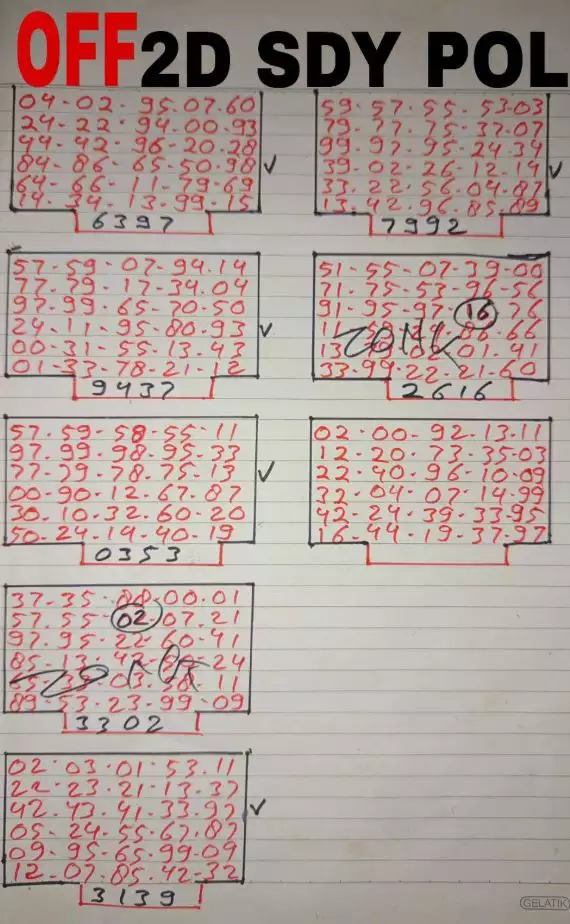 OFF2D SDY POL
04-02-95.07.60
24-22-94.00.93
44-42-96-20.28
84-86-65-50.98
64-66-11-79-69
14-34-13.99.15
6397
57-59-07-94.14
77.79-17-34.04
97.99.65-70.50
24-11-95-80.93
00-31-55.13.43
01-33-78.21-12
9437
57-59-58-55-11
97.99.98-95.33
77-79-78.75-13
00-90-12-67.87
30.10.32.60-20
50-24.14-40-19
0353
37-35-88-00.01
57.55-02-07.21
97.95-22-60-41
24
11
89-53-23-99-09
3302
02-03-01-53.11
22-23-21-13-37
42.43.41.33.97
05-24-55-67.87
09-95-65-99-09
12-07.85.42-32
3139
59-57-55-53-03
79-77-75-37-07
99-97-95-24-34
39-02-26-12-14
33.22-56-04-87
13.42.96.85.89
7992
51-55-07-39-00
71.75-53-96-56
16 76
66
01.41
33-99-22-21-60
2616
02-00-92-13-11
12-20-73-35-03
22-40-96-10-09
32-04-07-14-99
42-24-39-33.95
16-44-19-37-97
GELATIK